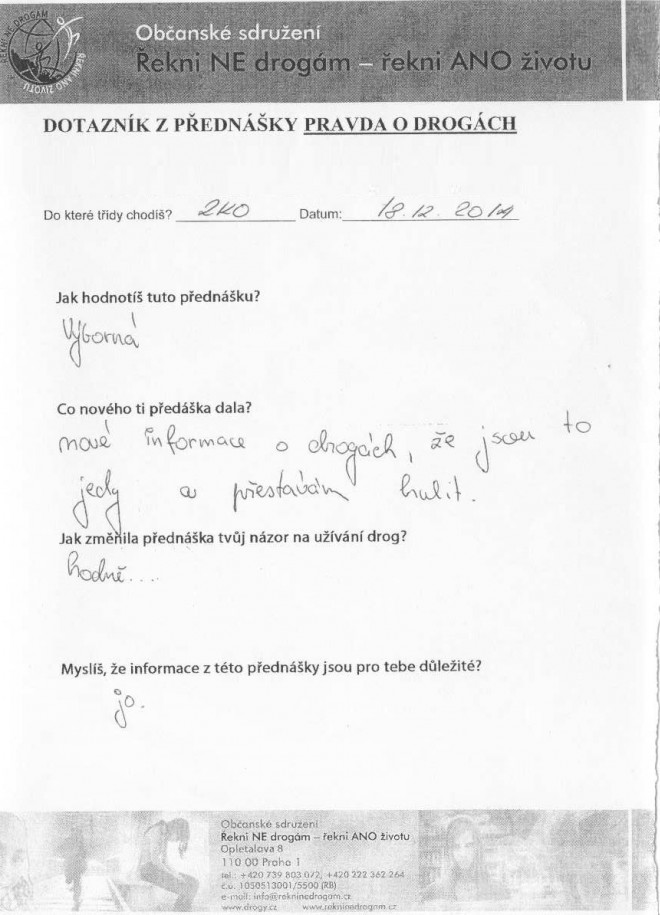 ŘEKNI NE DROGÁM
ŘEKNI ANO ŽIVOTU
Občanské sdružení
Řekni NE drogám – řekni ANO životu
DOTAZNÍK Z PŘEDNÁŠKY PRAVDA O DROGÁCH
Do které třídy chodíš? 2KO Datum: 18.12. 2014
Jak hodnotíš tuto přednášku?
Výborná
Co nového ti předáška dala?
nové informace o drogách, že jsou to
jedy a přestávám hulit.
Jak změnila přednáška tvůj názor na užívání drog?
hodně....
Myslíš, že informace z této přednášky jsou pro tebe důležité?
jo.
Občanské sdružení
Řekni NE drogám – řekni ANO životu
Opletalova 8
110 00 Praha 1
tel.: +420 739 803 072, +420 222 362 264
č.ú. 1050513001/5500 (RB)
e-mail: info@rekninedrogam.cz
www.drogy.cz www.rekninedrogam.cz